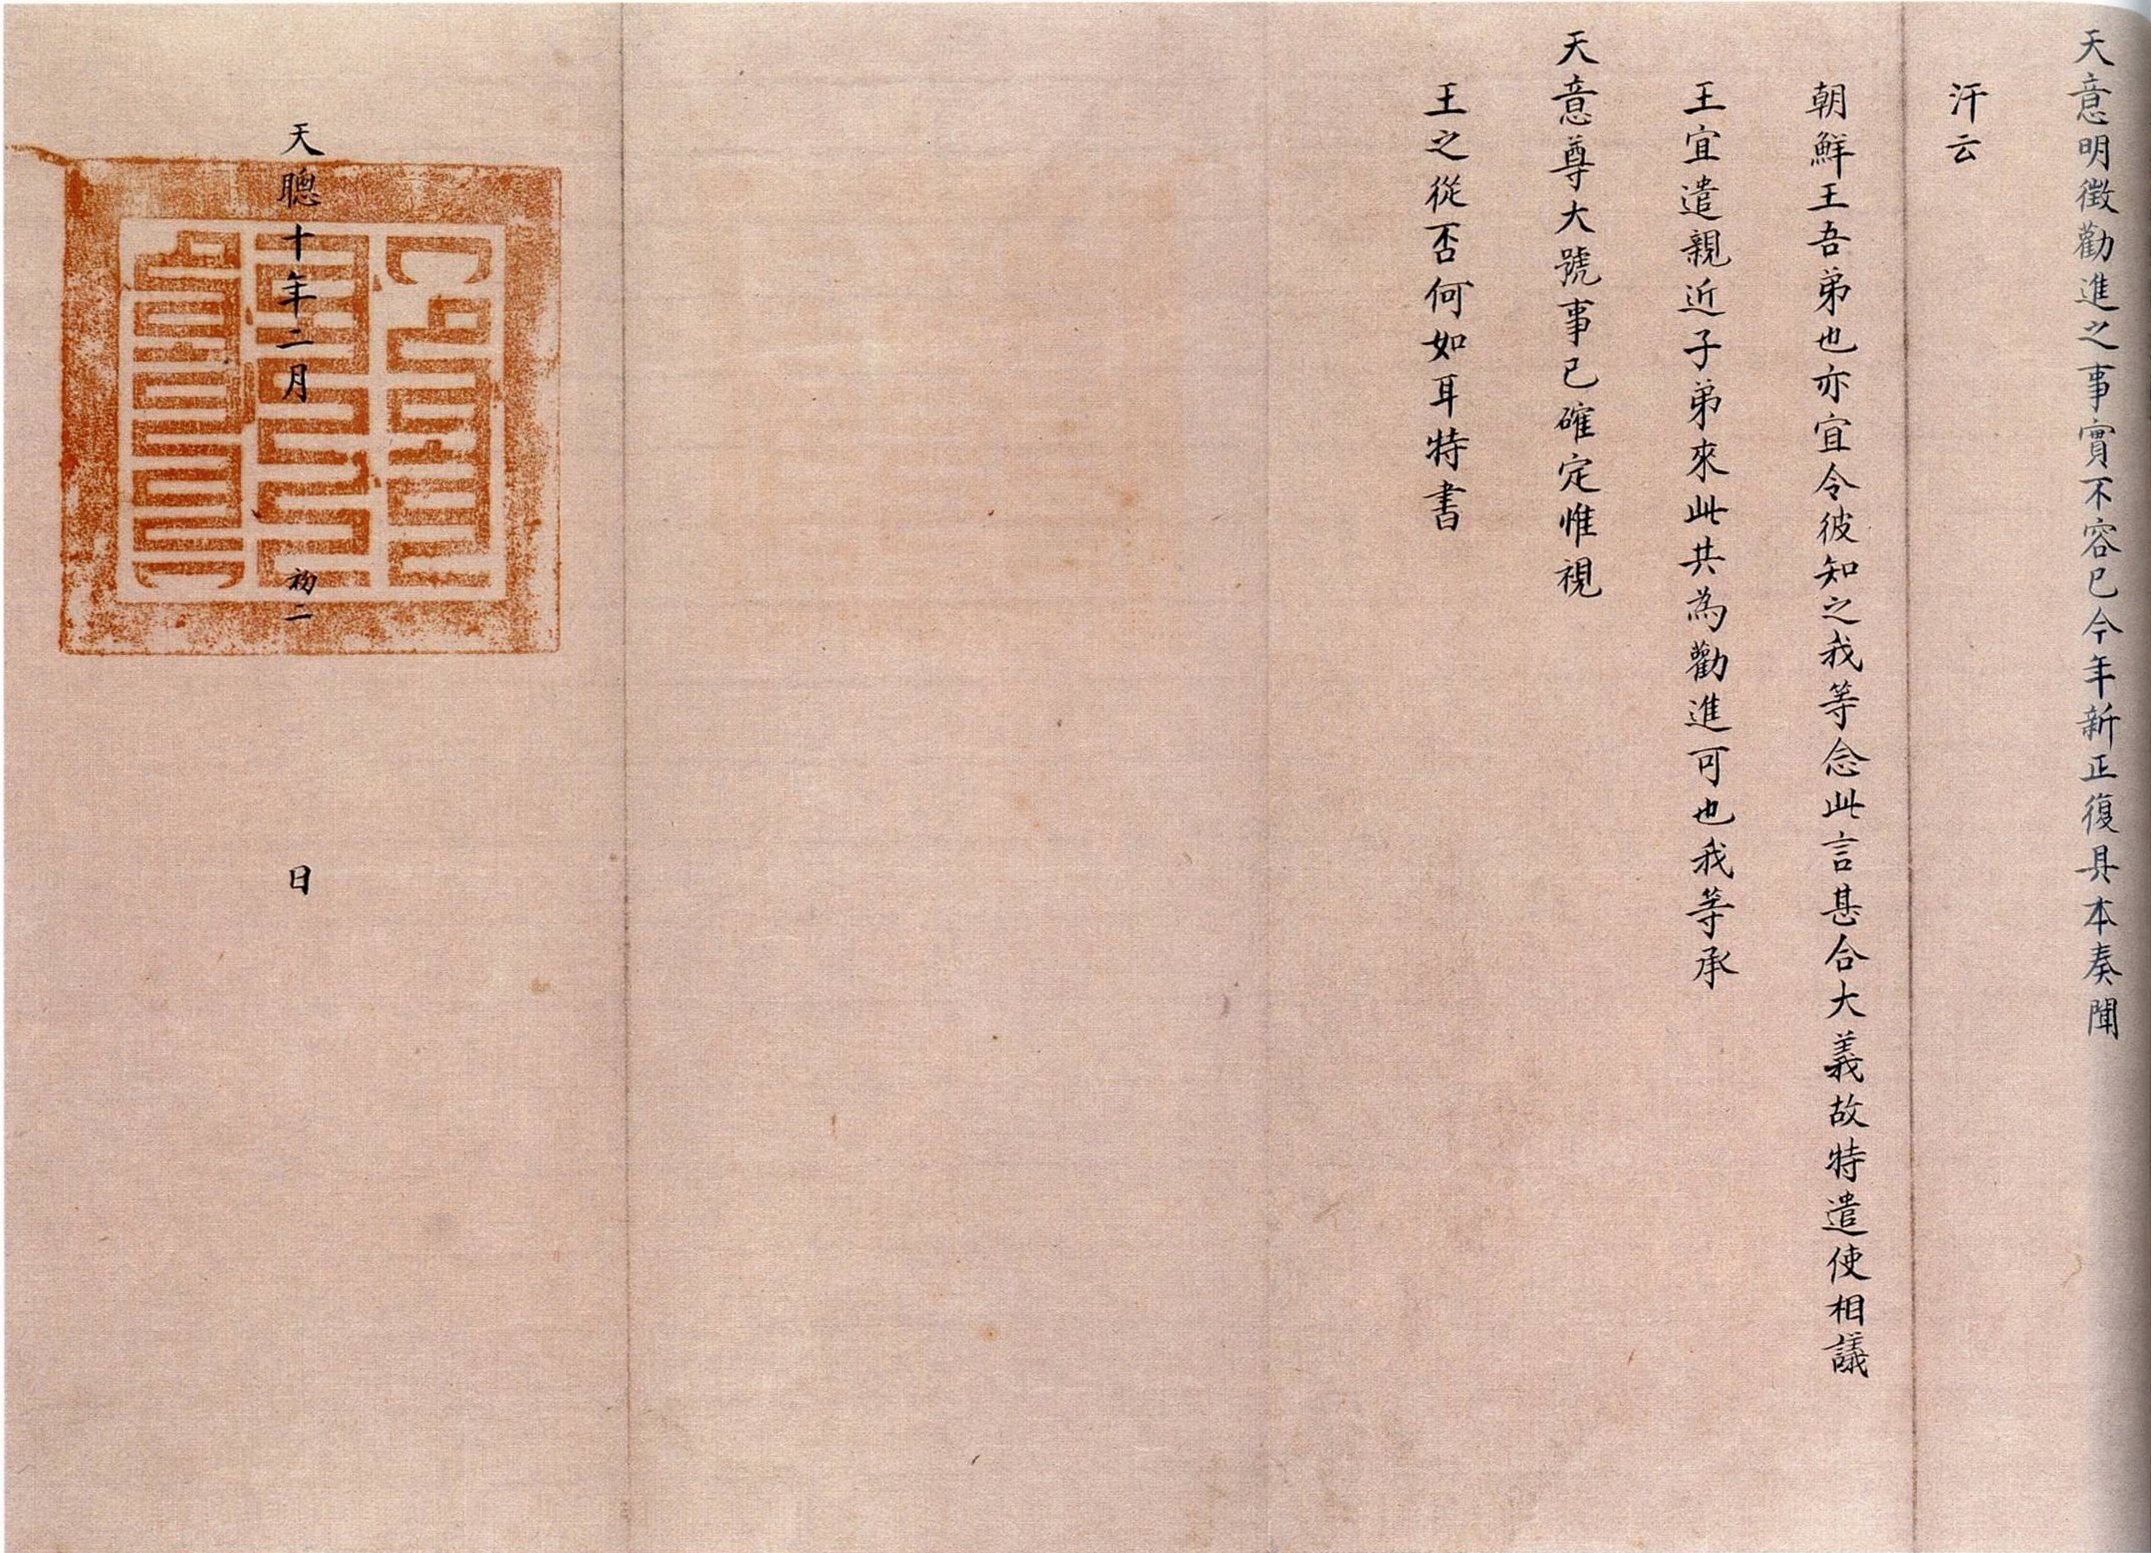 天意明徵勸進之事實不容已今年新正復具本奏聞
汗云
朝鮮王吾弟也亦宜令彼知之我等念此言甚合大義故特遣使相議
王宜遣親近子弟來此共為勸進可也我等承
天意尊大號事已確定惟視
王之從否何如耳特書
天聰十年二月初二日